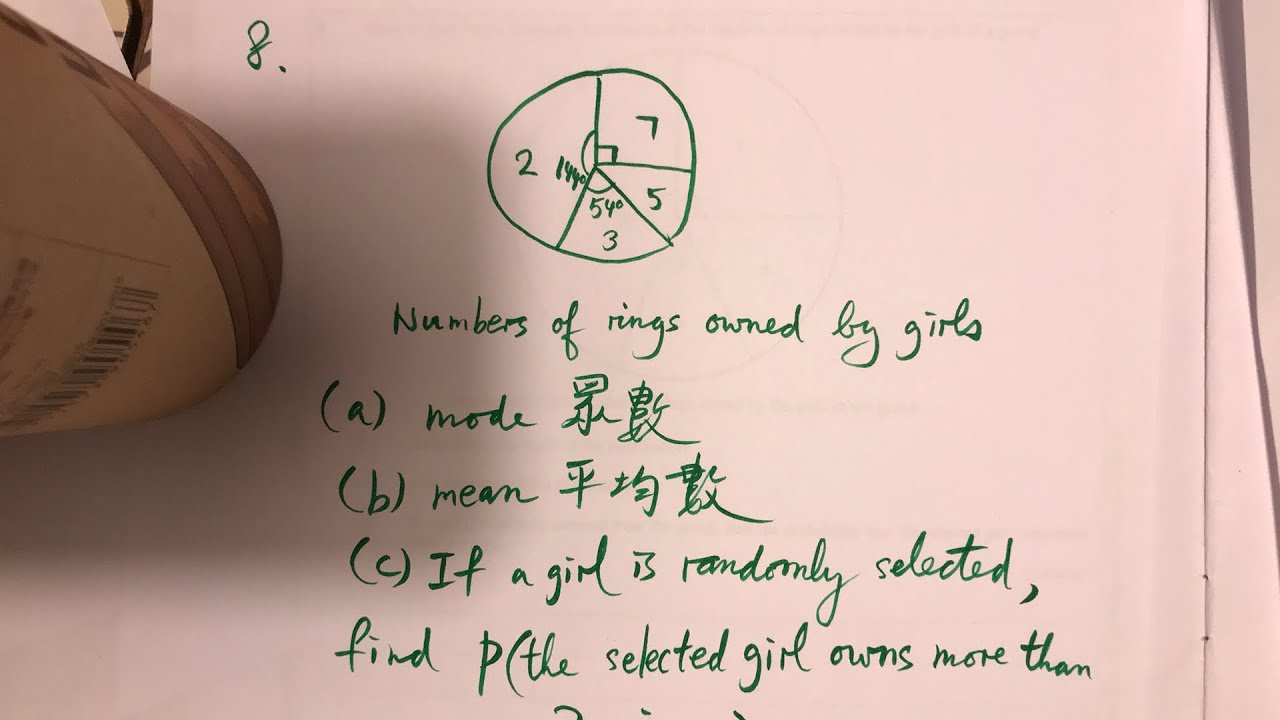 8.
7
2 144°
5
54°
3
Numbers of rings owned by girls
(a) mode 眾數
(b) mean 平均數
(c) If a girl is randomly selected,
find P(the selected girl owns more than